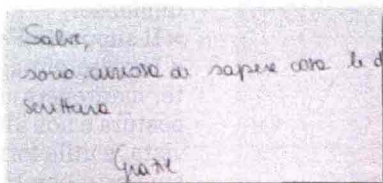 Salve,
sono curiosa di sapere cosa le d
scrittura
Grazie